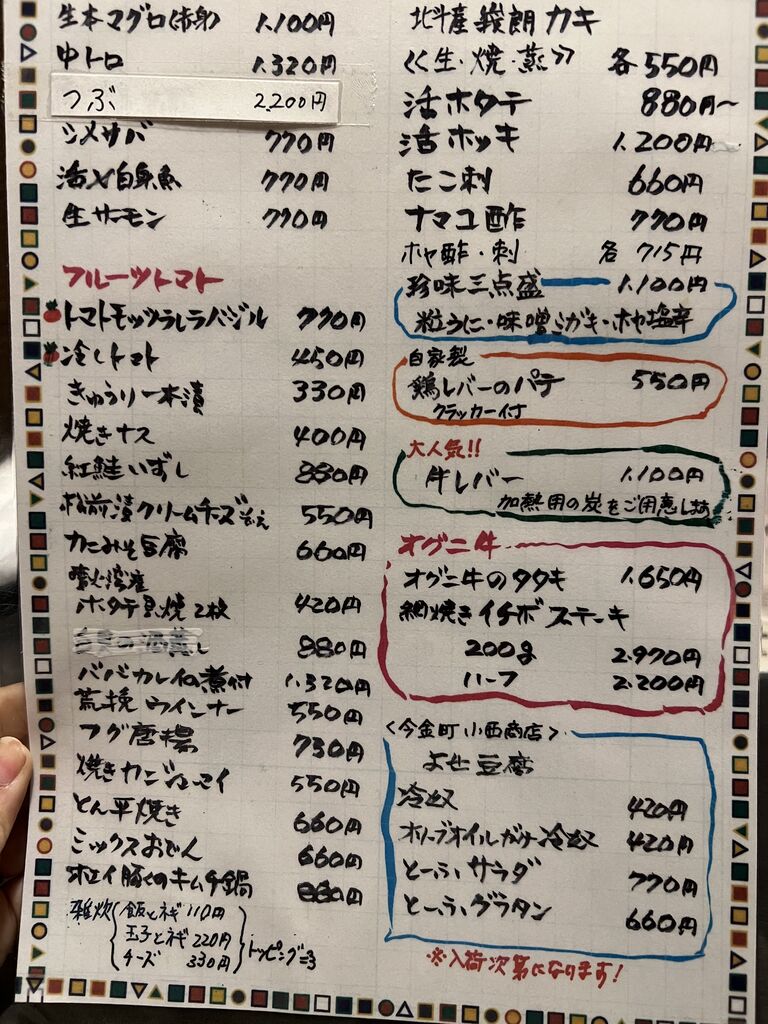 生本マグロ(赤身) 1.100円
中トロ 1.320円
つぶ 2,200円
シメサバ 770円
活〆白身魚 770円
生サーモン 770円
フルーツトマト
トマトモッツァレラバジル 770円
冷しトマト 450円
きゅうり一本漬 330円
焼きナス 400円
紅鮭いずし 880円
松前漬クリームチーズそえ 550円
カニみそ豆腐 660円
噴火湾産
ホタテ貝焼2枚 420円
880円
ババカレイの煮付 1.320円
荒挽ウインナー 550円
フグ唐揚 730円
焼きカニシューマイ 550円
とん平焼き 660円
ミックスおでん 660円
ホエイ豚のキムチ鍋 880円
雑炊 飯とネギ 110円
玉子とネギ 220円
チーズ 330円
トッピング
北斗産 峩朗カキ
<<生・焼・蒸>> 各550円
活ホタテ 880円〜
活ホッキ 1.200円
たこ刺 660円
ナマコ酢 770円
ホヤ酢・刺 各715円
珍味三点盛 1.100円
粒うに・味噌ミガキ・ホヤ塩辛
自家製
鶏レバーのパテ 550円
クラッカー付
大人気!!
牛レバー 1.100円
加熱用の炭をご用意します
オグニ牛
オグニ牛のタタキ 1.650円
網焼きイチボステーキ
200g 2.970円
ハーフ 2.200円
<今金町 小西商店>
よせ豆腐
冷奴 420円
オリーブオイルガーリック冷奴 420円
とーふサラダ 770円
とーふグラタン 660円
※入荷次第になります!